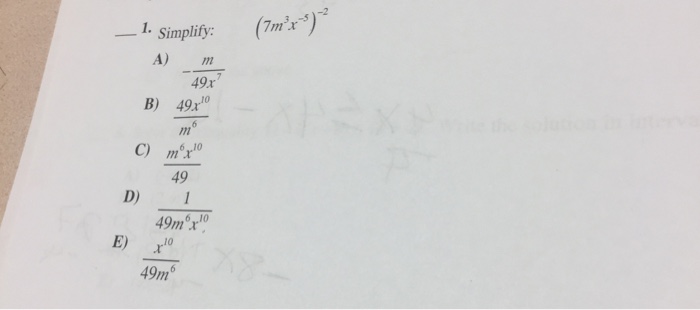 __ 1. Simplify: (7m³x⁻⁵)⁻²
A) -m/49x⁷
B) 49x¹⁰/m⁶
C) m⁶x¹⁰/49
D) 1/49m⁶x¹⁰
E) x¹⁰/49m⁶